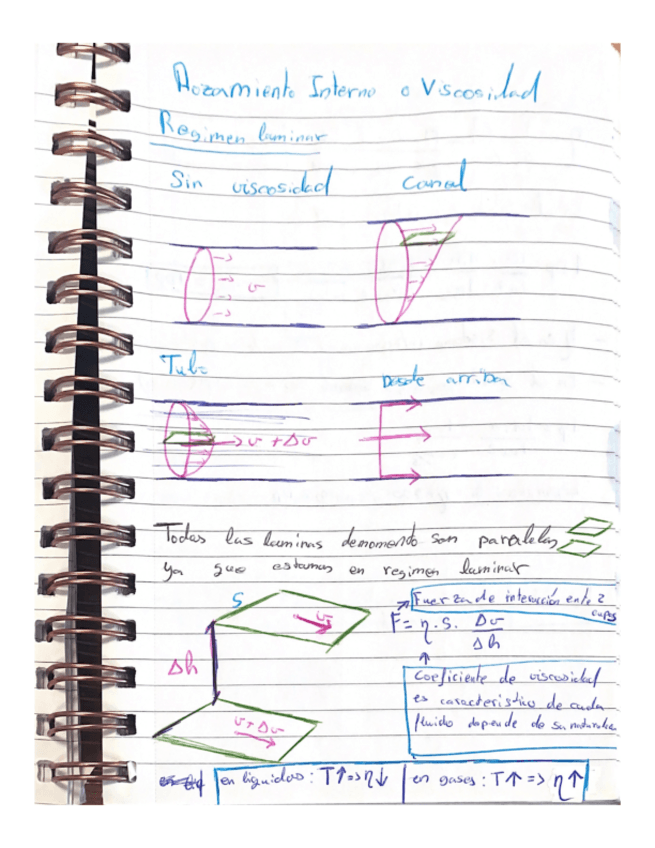 Rozamiento Interno o Viscosidad
Regimen laminar
Sin viscosidad
Canal
v
Tubo
Desde arriba
v + Δv
Todas las laminas demomento son paralelas
ya que estamos en regimen laminar
S
v
Δh
v + Δv
Fuerza de interacción entre 2
capas
F = η . S . Δv / Δh
Coeficiente de viscosidad
es caracteristico de cada
fluido depende de su naturaleza
en liquidos : T↑ => η↓
en gases : T↑ => η↑